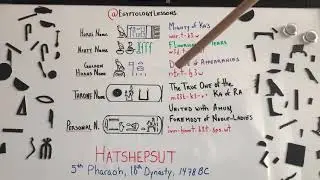 @EgyptologyLessons
Horus Name Mighty of Ka's
wsr.t-k3.w
Nebty Name
Golden Horus Name of Appearances
Throne Name The True One of the
Ka of Ra
Personal N. United with Amun,
Foremost of Noble-Ladies
Hatshepsut
5th Pharaoh, 18th Dynasty, 1478 BC